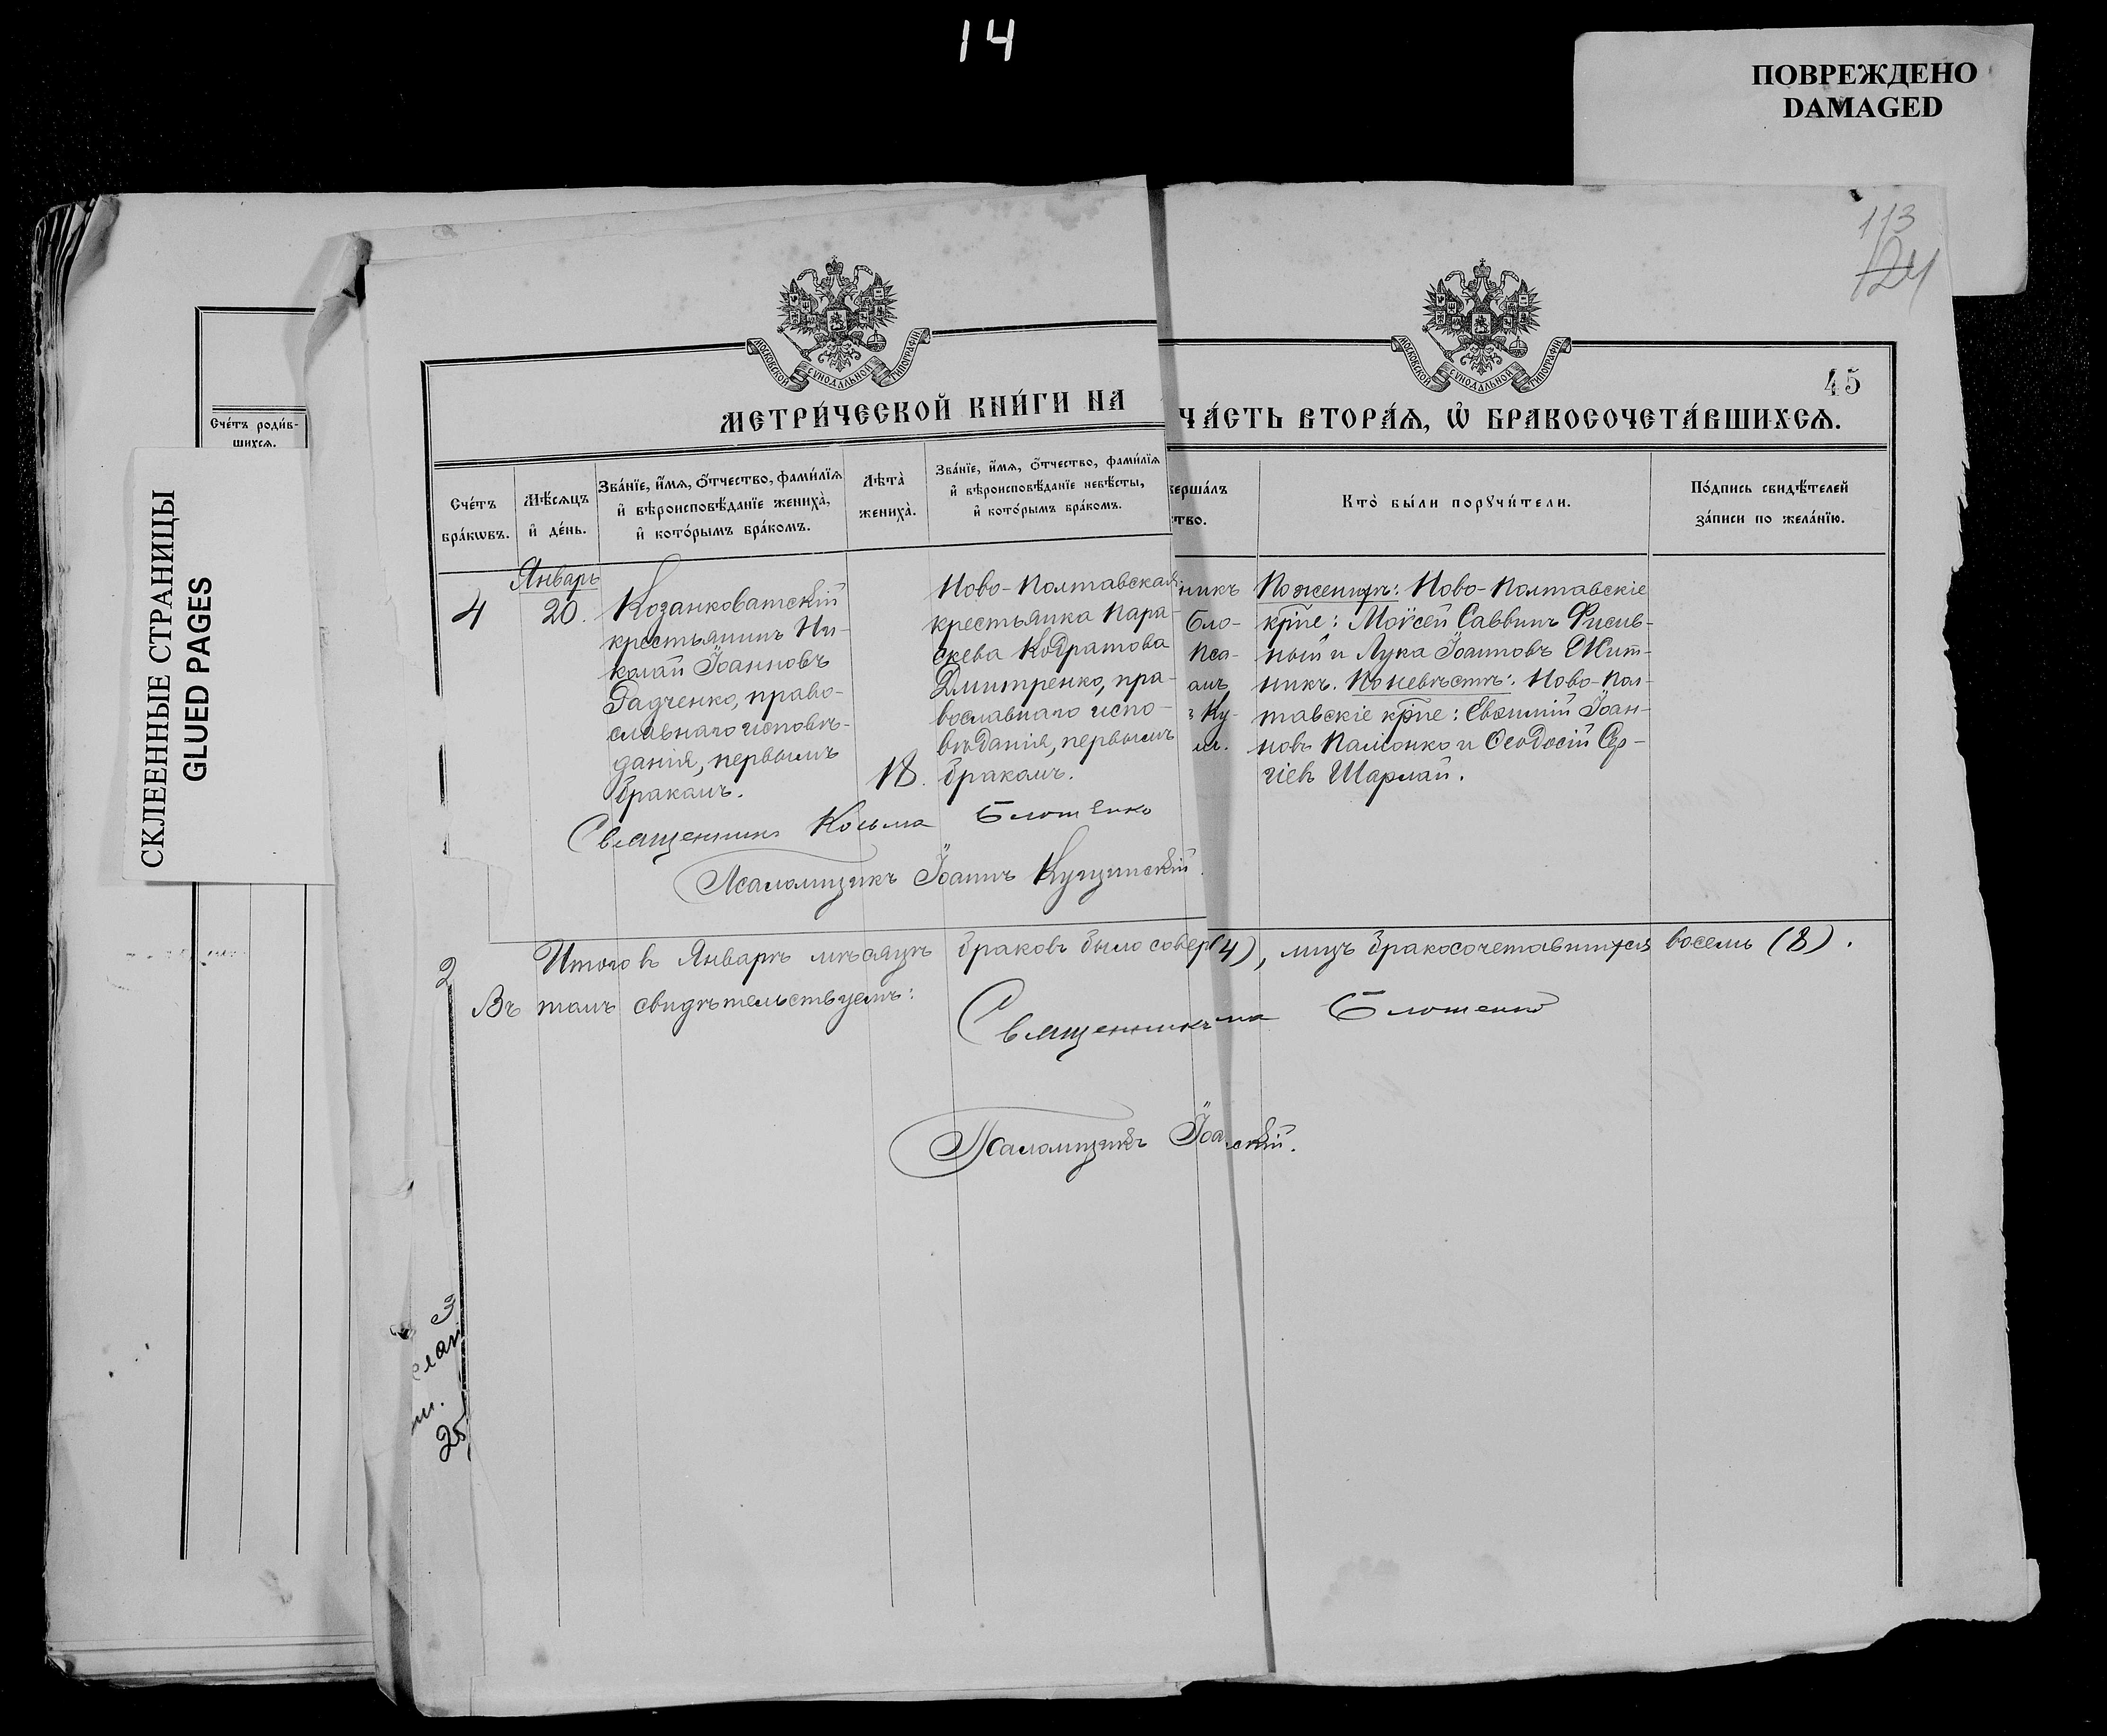 14
ПОВРЕЖДЕНО
DAMAGED
113
124
45
СКЛЕЕННЫЕ СТРАНИЦЫ
GLUED PAGES
Сче́тъ роди́в-
шихсѧ.
МОСКОВСКОЙ СѴНОДАЛЬНОЙ ТИПОГРАФІИ
МОСКОВСКОЙ СѴНОДАЛЬНОЙ ТИПОГРАФІИ
МЕТРИ́ЧЕСКОЙ КНИ́ГИ НА
ЧА́СТЬ ВТОРА́Ѧ, Ѡ҆ БРАКОСОЧЕТА́ВШИХСѦ.
Сче́тъ
бра́кѡвъ.
Мѣ́сѧцъ
и҆ де́нь.
Зва́нїе, и҆́мѧ, ѻ҆́тчество, фами́лїѧ
и҆ вѣроисповѣ́данїе жениха̀,
и҆ кото́рымъ бра́комъ.
Лѣ́та̀
жениха̀.
Зва́нїе, и҆́мѧ, ѻ҆́тчество, фами́лїѧ
и҆ вѣроисповѣ́данїе невѣ́сты,
и҆ кото́рымъ бра́комъ.
верша́лъ
тво.
Кто̀ бы́ли порꙋчи́тели.
По́дпись свидѣ́телей
за́писи по жела́нїю.
4
Январь
20.
Козанковатскій
крестьянинъ Ни-
колай Іоанновъ
Радченко, право-
славнаго исповѣ-
данія, первымъ
бракомъ.
18.
Ново-Полтавская
крестьянка Пара-
скева Кодратова
Дмитренко, пра-
вославнаго испо-
вѣданія, первымъ
бракомъ.
никъ
Бло-
Пса-
анъ
Ку-
По женихѣ: Ново-Полтавскіе
кр̃не: Моѵсей Саввинъ
и Лука Іоанновъ Жит-
никъ. По невѣстѣ: Ново-Пол-
тавскіе кр̃не: Евѳимій Іоан-
новъ и Ѳеодосій Сер-
гіевъ Шарлай.
Священникъ Козьма Блошенко
Псаломщикъ Іоаннъ
Итого въ Январѣ мѣсяцѣ браковъ было совер 4), лицъ бракосочетавшихся восемь (8).
2
Въ томъ свидѣтельствуемъ:
Священникъ ма Блошенко
Псаломщикъ Іоа скій.
3
25